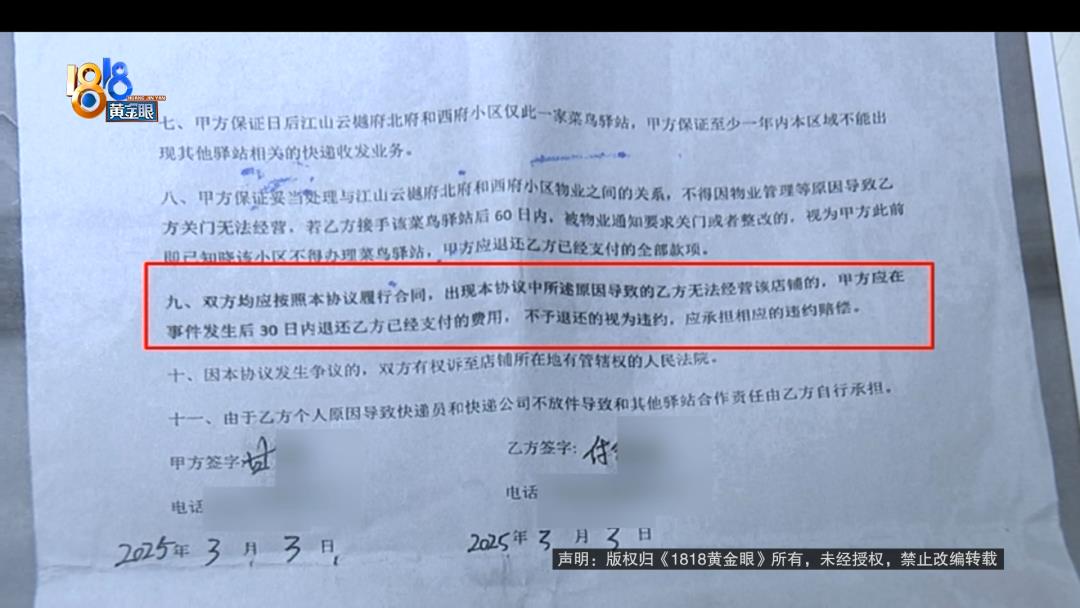 1818
HUANG JIN YAN
黄金眼
七、甲方保证日后江山云樾府北府和西府小区仅此一家菜鸟驿站，甲方保证至少一年内本区域不能出
现其他驿站相关的快递收发业务。
八、甲方保证妥当处理与江山云樾府北府和西府小区物业之间的关系，不得因物业管理等原因导致乙
方关门无法经营，若乙方接手该菜鸟驿站后60日内，被物业通知要求关门或者整改的，视为甲方此前
即已知晓该小区不得办理菜鸟驿站，甲方应退还乙方已经支付的全部款项。
九、双方均应按照本协议履行合同，出现本协议中所述原因导致的乙方无法经营该店铺的，甲方应在
事件发生后30日内退还乙方已经支付的费用，不予退还的视为违约，应承担相应的违约赔偿。
十、因本协议发生争议的，双方有权诉至店铺所在地有管辖权的人民法院。
十一、由于乙方个人原因导致快递员和快递公司不放件导致和其他驿站合作责任由乙方自行承担。
甲方签字:甘 乙方签字:付
电话 电话
2025年3月3日. 2025年3月3日
声明：版权归《1818黄金眼》所有，未经授权，禁止改编转载